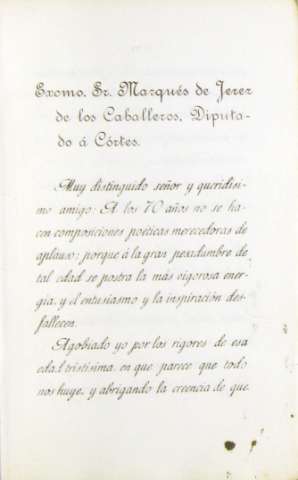 Exomo. Sr. Marqués de Jerez
de los Caballeros, Diputa-
do á Córtes.
Muy distinguido señor y queridísi-
mo amigo: A los 70 años no se ha-
cen composiciones poéticas merecedoras de
aplauso; porque á la gran pesadumbre de
tal edad se postra la más vigorosa ener-
gía, y el entusiasmo y la inspiración des-
fallecen.
Agobiado yo por los rigores de esa
edad tristísima, en que parece que todo
nos huye, y abrigando la creencia de que